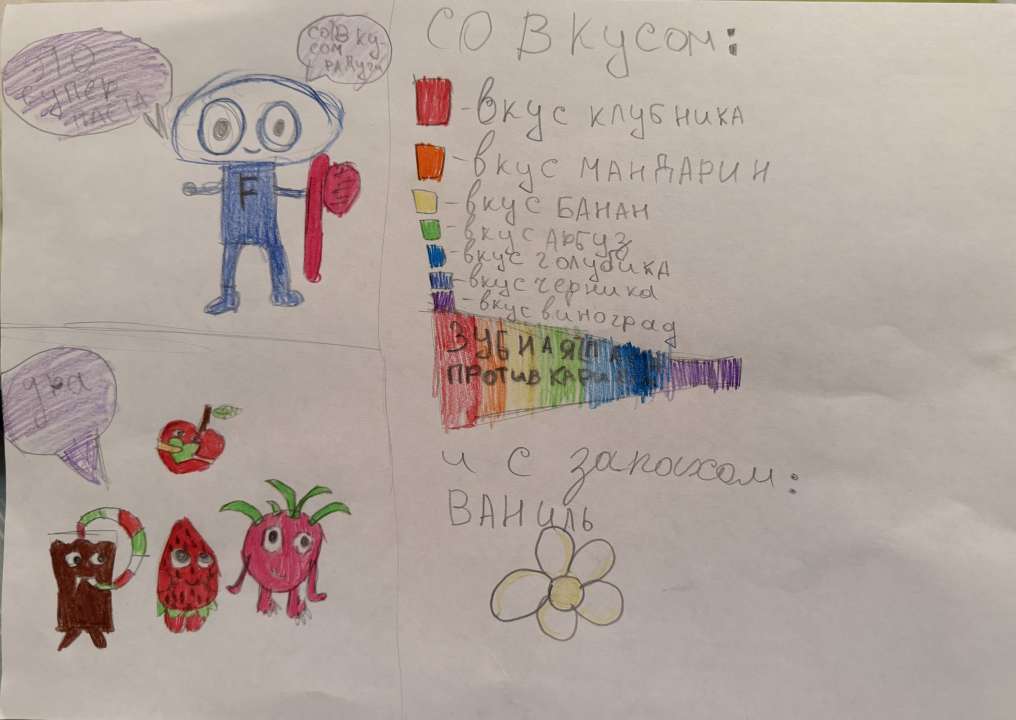 ЭТО
СУПЕР
ПАСТА
СО ВКУ-
СОМ
РАДУГИ
F
ура
СО ВКУСОМ:
- вкус клубника
- вкус МАНДАРИН
- вкус БАНАН
- вкус АРБУЗ
- вкус голубика
- вкус черника
- вкус виноград
ЗУБНАЯ
ПРОТИВ
и с запахом:
ВАНИЛЬ